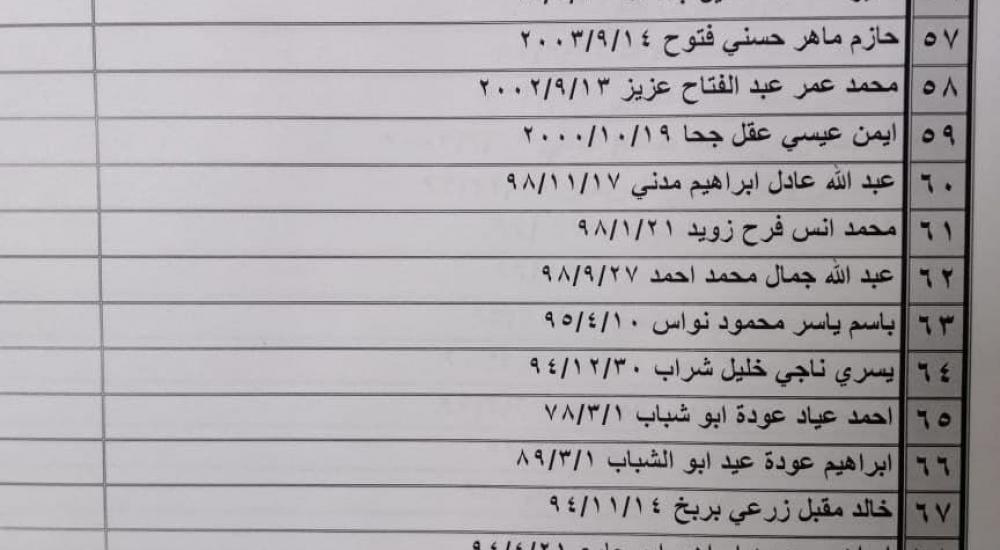 ٥٧ حازم ماهر حسني فتوح ٢٠٠٣/٩/١٤
٥٨ محمد عمر عبد الفتاح عزيز ٢٠٠٢/٩/١٣
٥٩ ايمن عيسي عقل جحا ٢٠٠٠/١٠/١٩
٦٠ عبد الله عادل ابراهيم مدني ٩٨/١١/١٧
٦١ محمد انس فرح زويد ٩٨/١/٢١
٦٢ عبد الله جمال محمد احمد ٩٨/٩/٢٧
٦٣ باسم ياسر محمود نواس ٩٥/٤/١٠
٦٤ يسري ناجي خليل شراب ٩٤/١٢/٣٠
٦٥ احمد عياد عودة ابو شباب ٧٨/٣/١
٦٦ ابراهيم عودة عيد ابو الشباب ٨٩/٣/١
٦٧ خالد مقبل زرعي بربخ ٩٤/١١/١٤
٩٤/٤/٢١